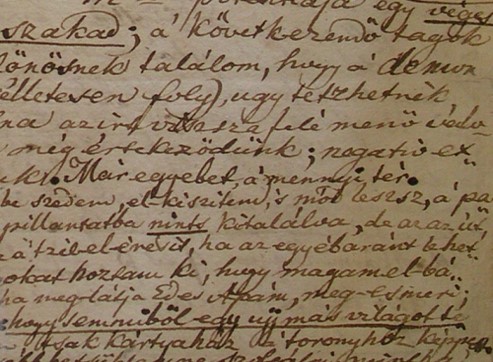 potentiája egy véges
szakad; á következendő tagok
lönösnek találom, hogy á demon
élletesen foly), ugy tetzhetnék
na azirt visszafelé menő
még értekeződünk; negativ
uk. Már egyebet, á mennyi tér.
be szedem, el-készitem, 's mód lessz, á pa
pillantatba nints kitalálva, de az az út,
á' tzél el-érésit, ha az egyébaránt lehet,
okat hoztam ki, hogy magam el-bá
ha meg-látja Édes Apám, meg-esmeri;
hogy semmiből egy ujj más világot te
tsak kártyaház a toronyhoz képpes